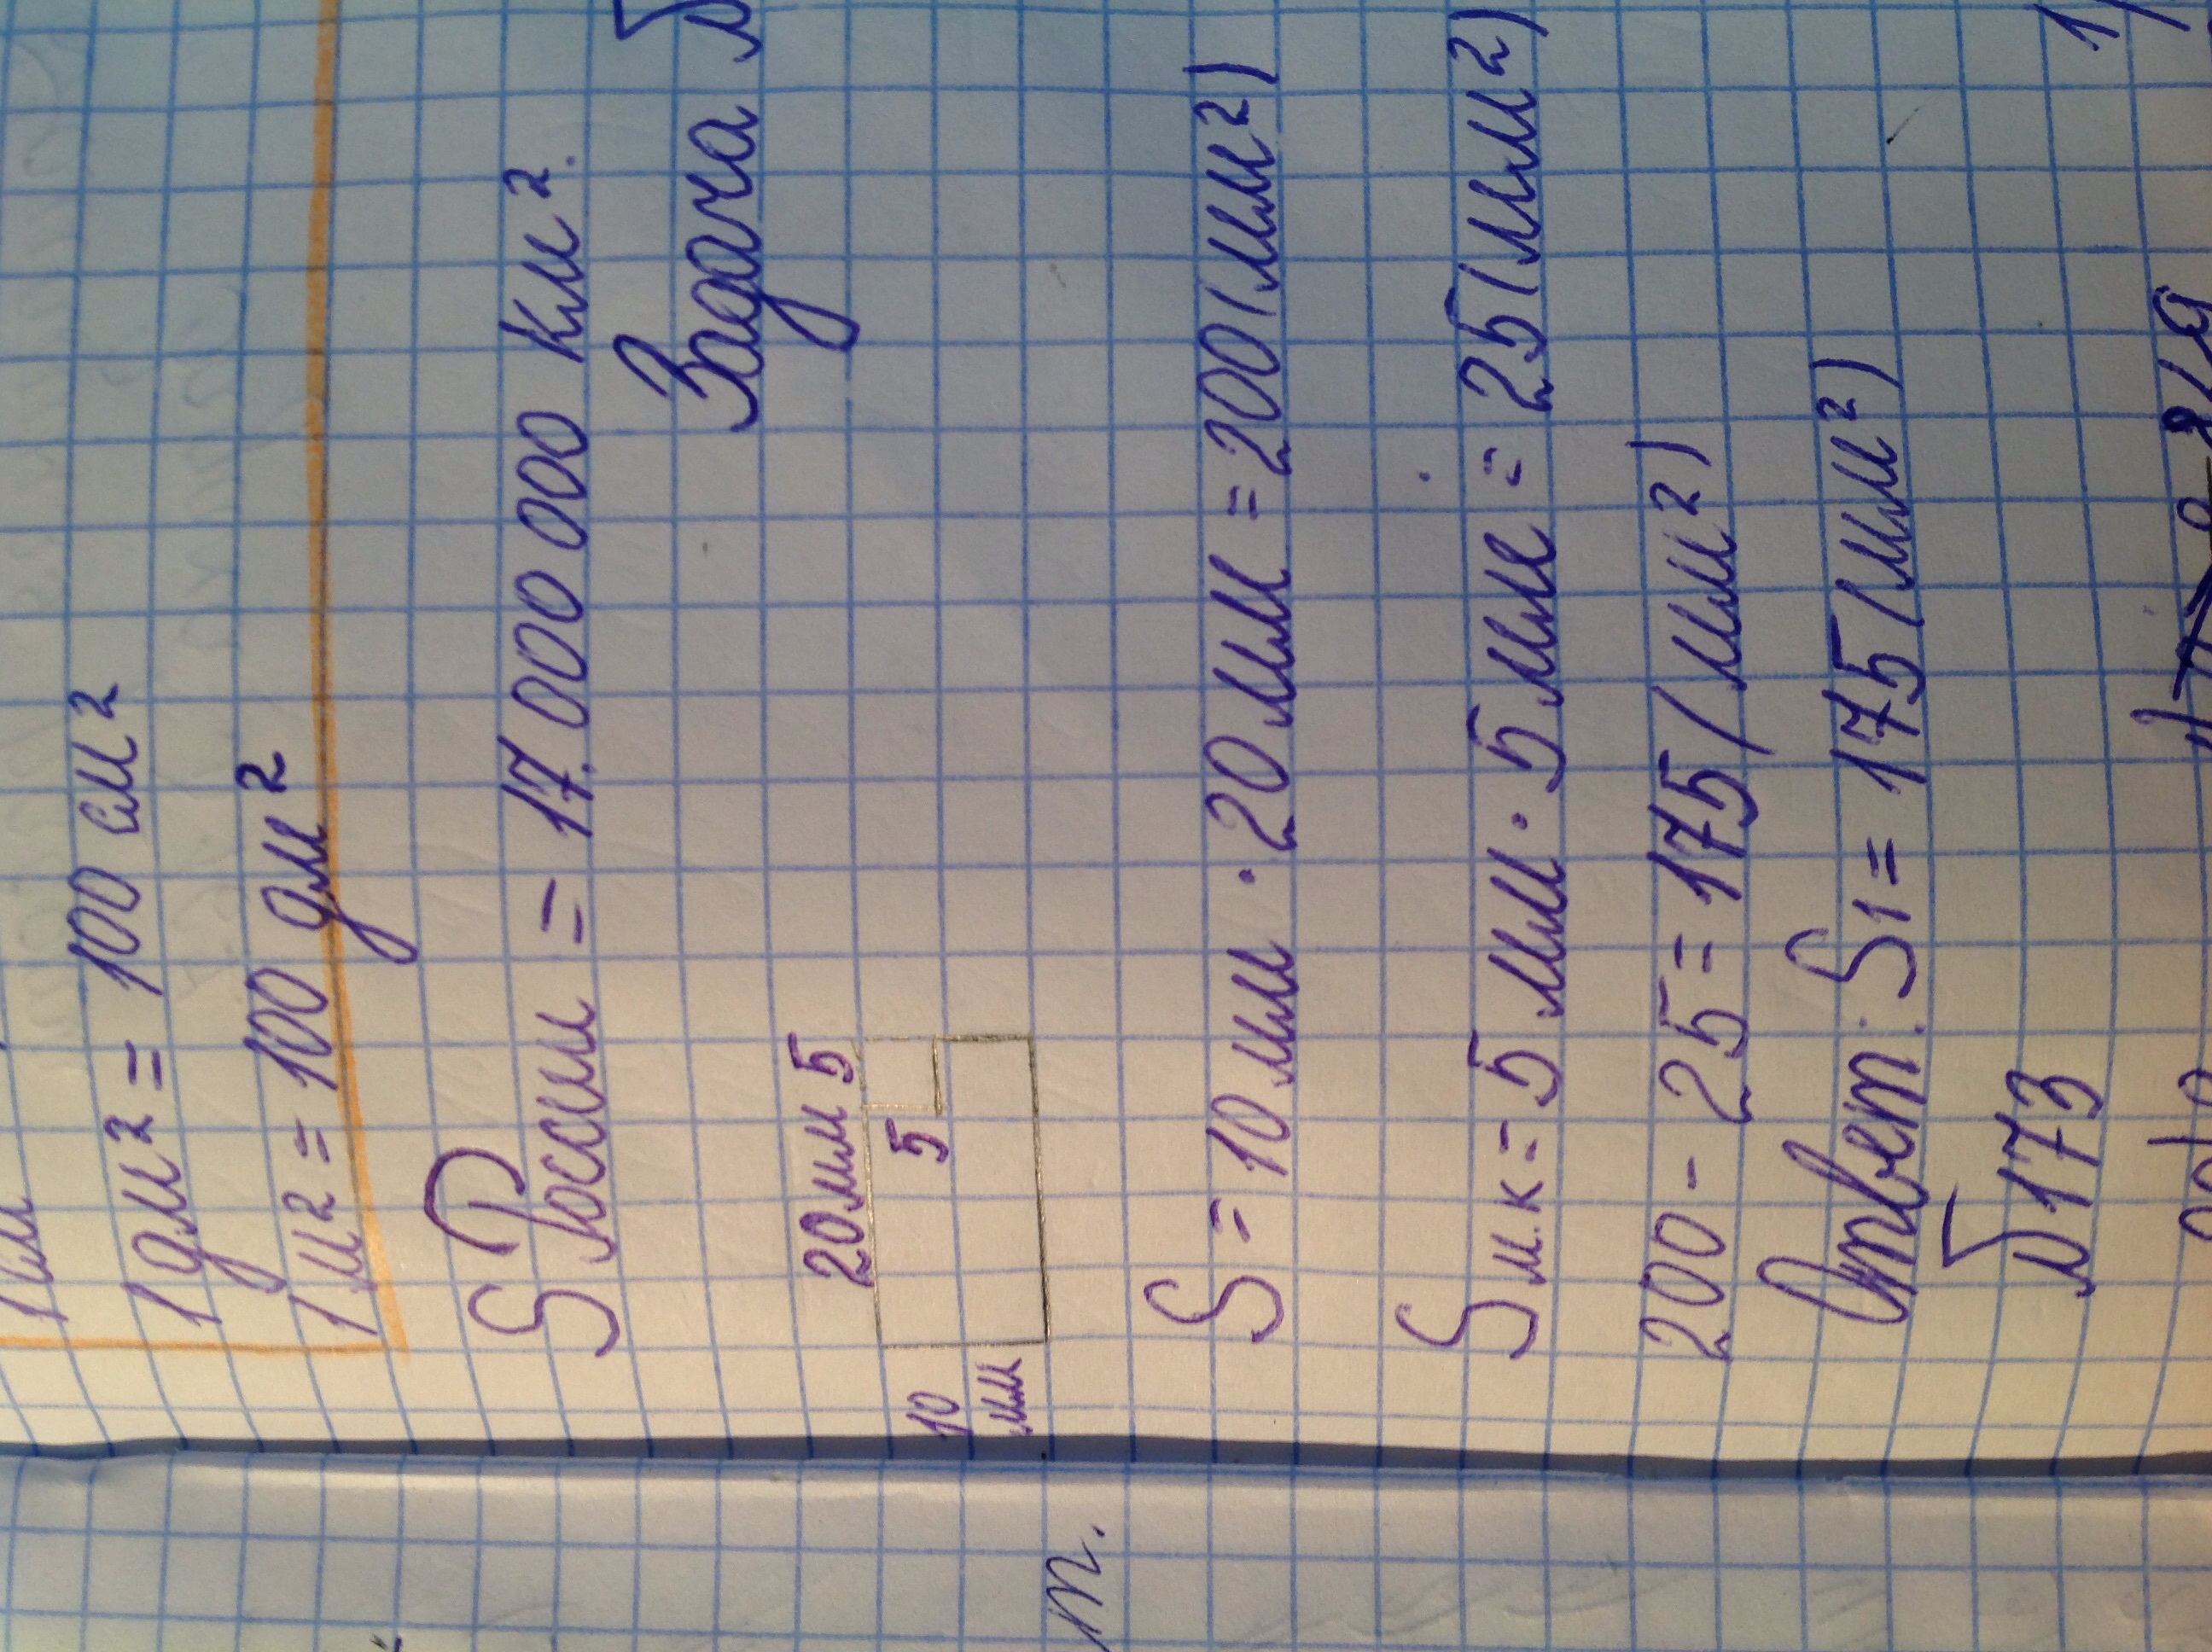 1 дм² = 100 см²
1 м² = 100 дм²
S России = 17.000 000 км².
Задача
20мм 5
5
10
мм
S = 10 мм · 20 мм = 200 (мм²)
S м.к = 5 мм · 5 мм = 25 (мм²)
200 - 25 = 175 (мм²)
Ответ: S1 = 175 (мм²)
√173
т.